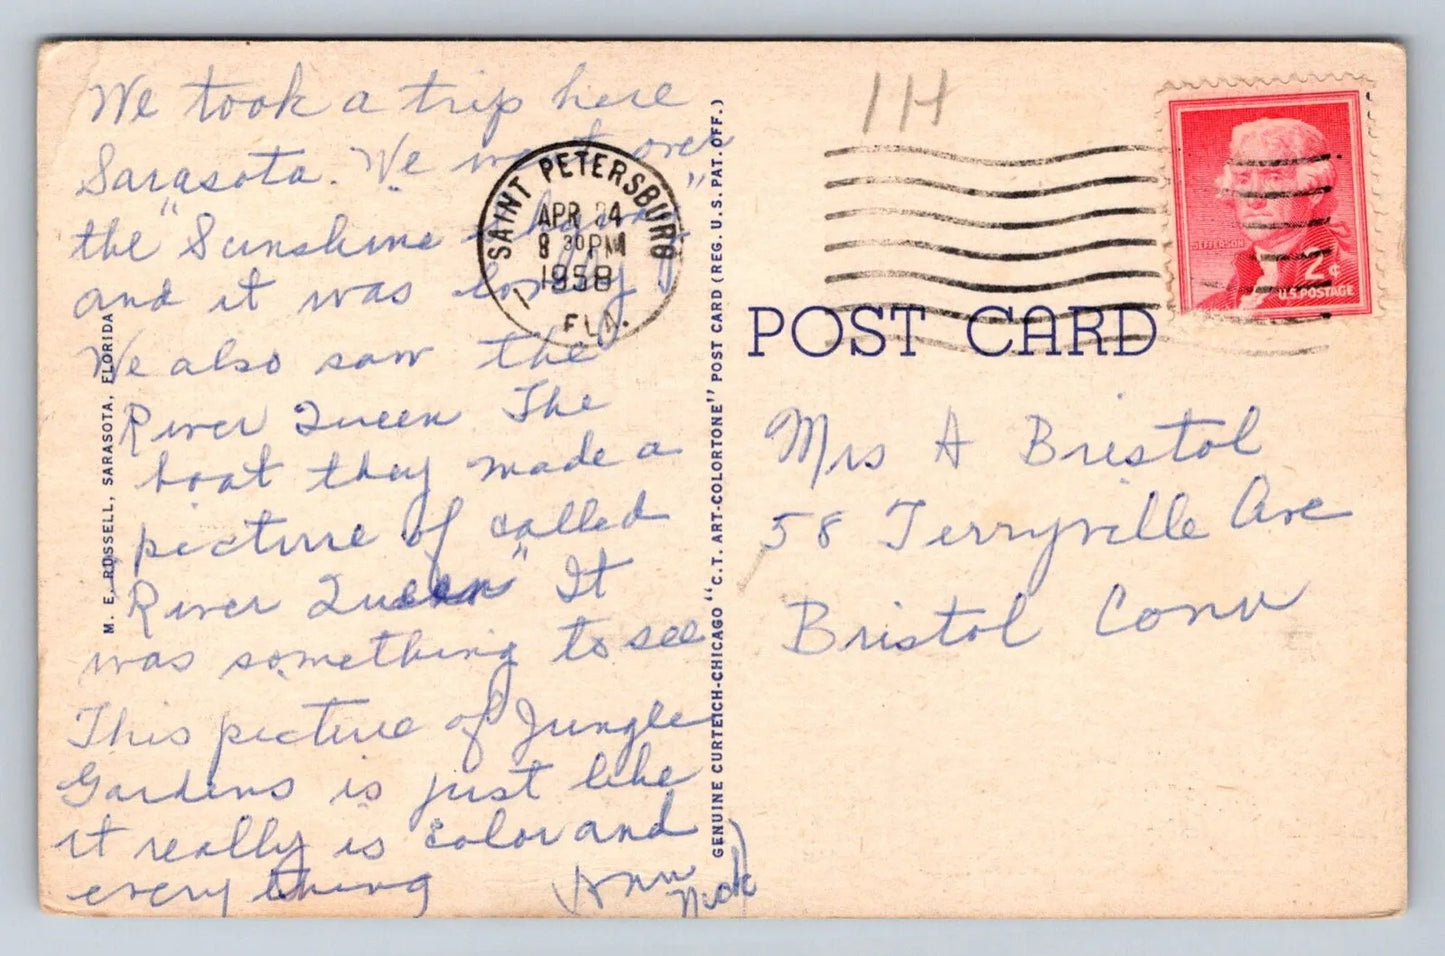 We took a trip here
Sarasota. We went over
the "Sunshine "
and it was lovely
We also saw the
River Queen The
boat they made a
picture of called
River Queen" It
was something to see
This picture of Jungle
Gardens is just like
it really is color and
every thing
Ann
Nick
M. E. RUSSELL, SARASOTA, FLORIDA
SAINT PETERSBURG
APR 24
8 30 PM
1958
FLA.
GENUINE CURTEICH-CHICAGO "C.T. ART-COLORTONE" POST CARD (REG. U.S. PAT. OFF.)
1H
JEFFERSON
2¢
U.S. POSTAGE
POST CARD
Mrs A Bristol
58 Terryville Ave
Bristol Conn